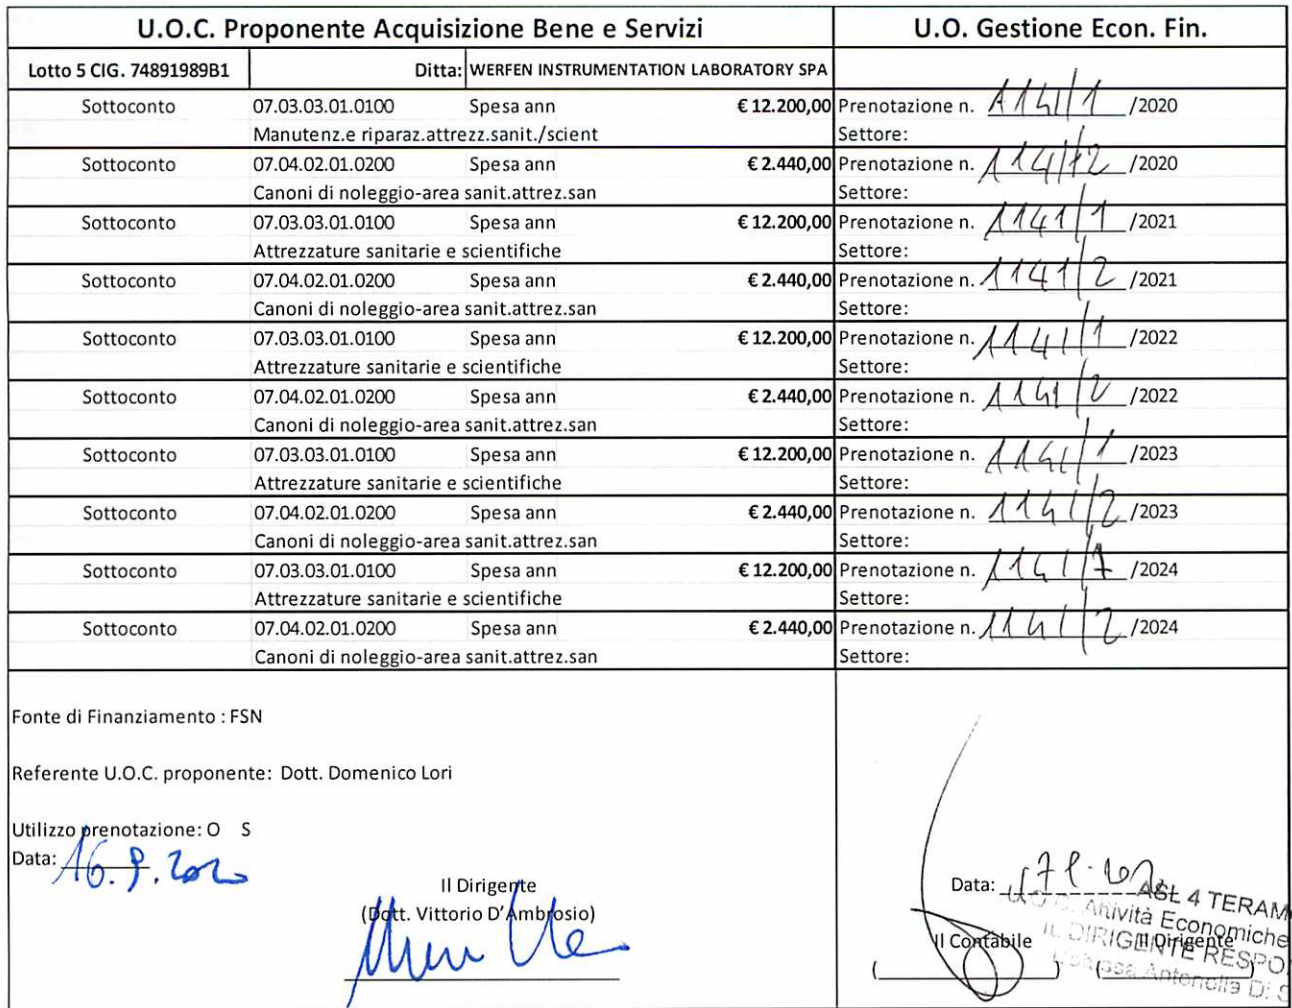 U.O.C. Proponente Acquisizione Bene e Servizi U.O. Gestione Econ. Fin.
Lotto 5 CIG. 74891989B1 Ditta: WERFEN INSTRUMENTATION LABORATORY SPA
Sottoconto 07.03.03.01.0100 Spesa ann € 12.200,00 Prenotazione n. 1141/1 /2020
Manutenz.e riparaz.attrezz.sanit./scient Settore:
Sottoconto 07.04.02.01.0200 Spesa ann € 2.440,00 Prenotazione n. 1141/2 /2020
Canoni di noleggio-area sanit.attrez.san Settore:
Sottoconto 07.03.03.01.0100 Spesa ann € 12.200,00 Prenotazione n. 1141/1 /2021
Attrezzature sanitarie e scientifiche Settore:
Sottoconto 07.04.02.01.0200 Spesa ann € 2.440,00 Prenotazione n. 1141/2 /2021
Canoni di noleggio-area sanit.attrez.san Settore:
Sottoconto 07.03.03.01.0100 Spesa ann € 12.200,00 Prenotazione n. 1141/1 /2022
Attrezzature sanitarie e scientifiche Settore:
Sottoconto 07.04.02.01.0200 Spesa ann € 2.440,00 Prenotazione n. 1141/2 /2022
Canoni di noleggio-area sanit.attrez.san Settore:
Sottoconto 07.03.03.01.0100 Spesa ann € 12.200,00 Prenotazione n. 1141/1 /2023
Attrezzature sanitarie e scientifiche Settore:
Sottoconto 07.04.02.01.0200 Spesa ann € 2.440,00 Prenotazione n. 1141/2 /2023
Canoni di noleggio-area sanit.attrez.san Settore:
Sottoconto 07.03.03.01.0100 Spesa ann € 12.200,00 Prenotazione n. 1141/1 /2024
Attrezzature sanitarie e scientifiche Settore:
Sottoconto 07.04.02.01.0200 Spesa ann € 2.440,00 Prenotazione n. 1141/2 /2024
Canoni di noleggio-area sanit.attrez.san Settore:
Fonte di Finanziamento : FSN
Referente U.O.C. proponente: Dott. Domenico Lori
Utilizzo prenotazione: O S
Data: 16.9.2020
Il Dirigente
(Dott. Vittorio D'Ambrosio)
Data:
Il Contabile Il Dirigente
ASL 4 TERAM
U.O.C. Attività Economiche
IL DIRIGENTE RESPO
Antonella Di S